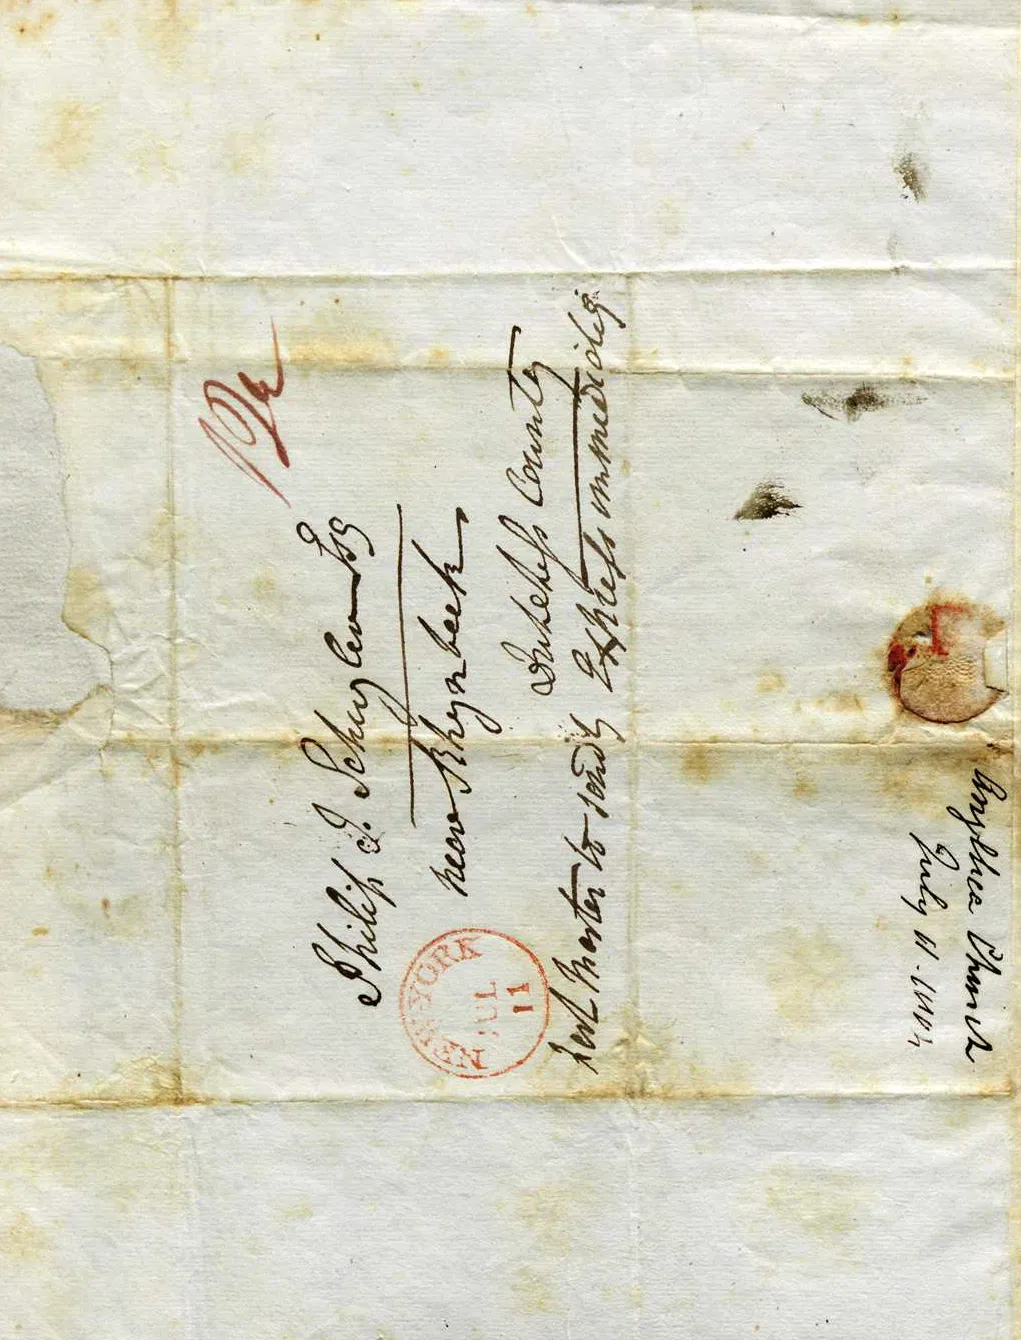 Philip J. Schuyler Esq
near Rhynbeck
Dutchess County
Post Master to send Express immediately
NEW-YORK
JUL
11
Church
July 11